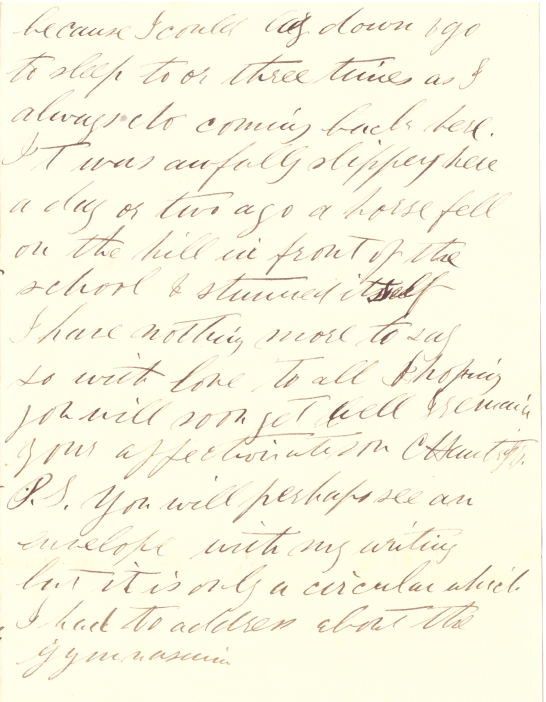 because I could lay down & go
to sleep to or three times as I
always do coming back here.
It was awfully slippery here
a day or two ago a horse fell
on the hill in front of the
school & stunned itself
I have nothing more to say
so with love to all & hoping
you will soon get well I remain
your affectionate son
P.S. You will perhaps see an
envelope with my writing
but it is only a circular which
I had to address about the
gymnasium